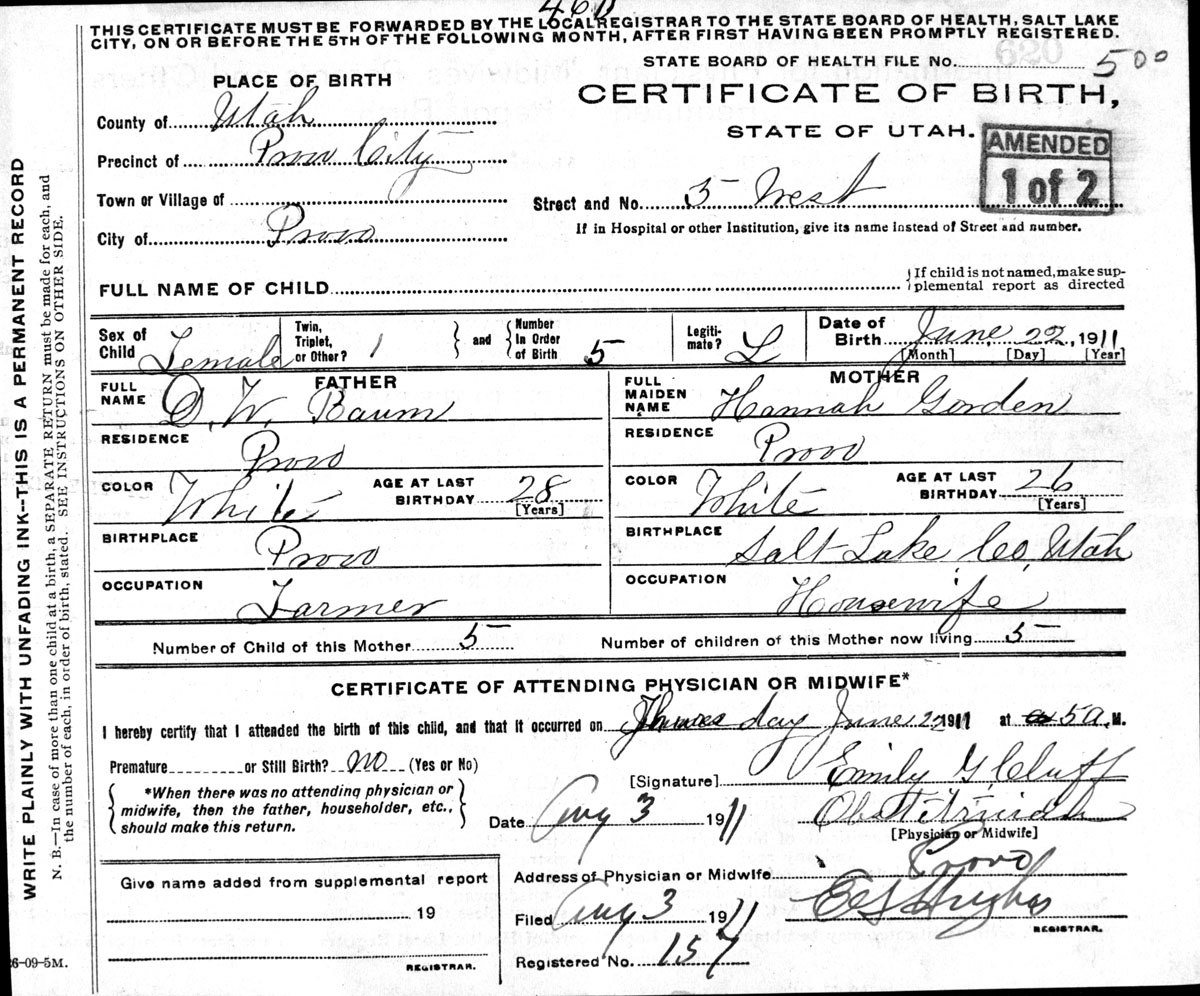 THIS CERTIFICATE MUST BE FORWARDED BY THE LOCAL REGISTRAR TO THE STATE BOARD OF HEALTH, SALT LAKE
CITY, ON OR BEFORE THE 5TH OF THE FOLLOWING MONTH, AFTER FIRST HAVING BEEN PROMPTLY REGISTERED.
STATE BOARD OF HEALTH FILE No. 500
PLACE OF BIRTH
CERTIFICATE OF BIRTH,
STATE OF UTAH.
AMENDED
1 of 2
County of Utah
Precinct of Provo City
Town or Village of
Street and No. 5 West
City of Provo
If in Hospital or other Institution, give its name instead of Street and number.
FULL NAME OF CHILD
If child is not named, make sup-
plemental report as directed
Sex of Child Female
Twin, Triplet, or Other? 1
and
Number in Order of Birth 5
Legiti-mate? L
Date of Birth June 22, 1911
[Month] [Day] [Year]
FATHER
FULL NAME D. W. Baum
RESIDENCE Provo
COLOR White AGE AT LAST BIRTHDAY 28 [Years]
BIRTHPLACE Provo
OCCUPATION Farmer
MOTHER
FULL MAIDEN NAME Hannah Gorden
RESIDENCE Provo
COLOR White AGE AT LAST BIRTHDAY 26 [Years]
BIRTHPLACE Salt Lake Co, Utah
OCCUPATION Housewife
Number of Child of this Mother 5 Number of children of this Mother now living 5
CERTIFICATE OF ATTENDING PHYSICIAN OR MIDWIFE*
I hereby certify that I attended the birth of this child, and that it occurred on Thursday June 22 1911 at 5 a. M.
Premature or Still Birth? no (Yes or No)
*When there was no attending physician or
midwife, then the father, householder, etc.,
should make this return.
[Signature] Emily G Cluff
Date Aug 3 1911
[Physician or Midwife]
Address of Physician or Midwife Provo
Give name added from supplemental report
19
REGISTRAR.
Filed Aug 3 1911 Hughes
REGISTRAR.
Registered No. 157
26-09-5M.
WRITE PLAINLY WITH UNFADING INK--THIS IS A PERMANENT RECORD
N. B.—In case of more than one child at a birth, a SEPARATE RETURN must be made for each, and
the number of each, in order of birth, stated. SEE INSTRUCTIONS ON OTHER SIDE.